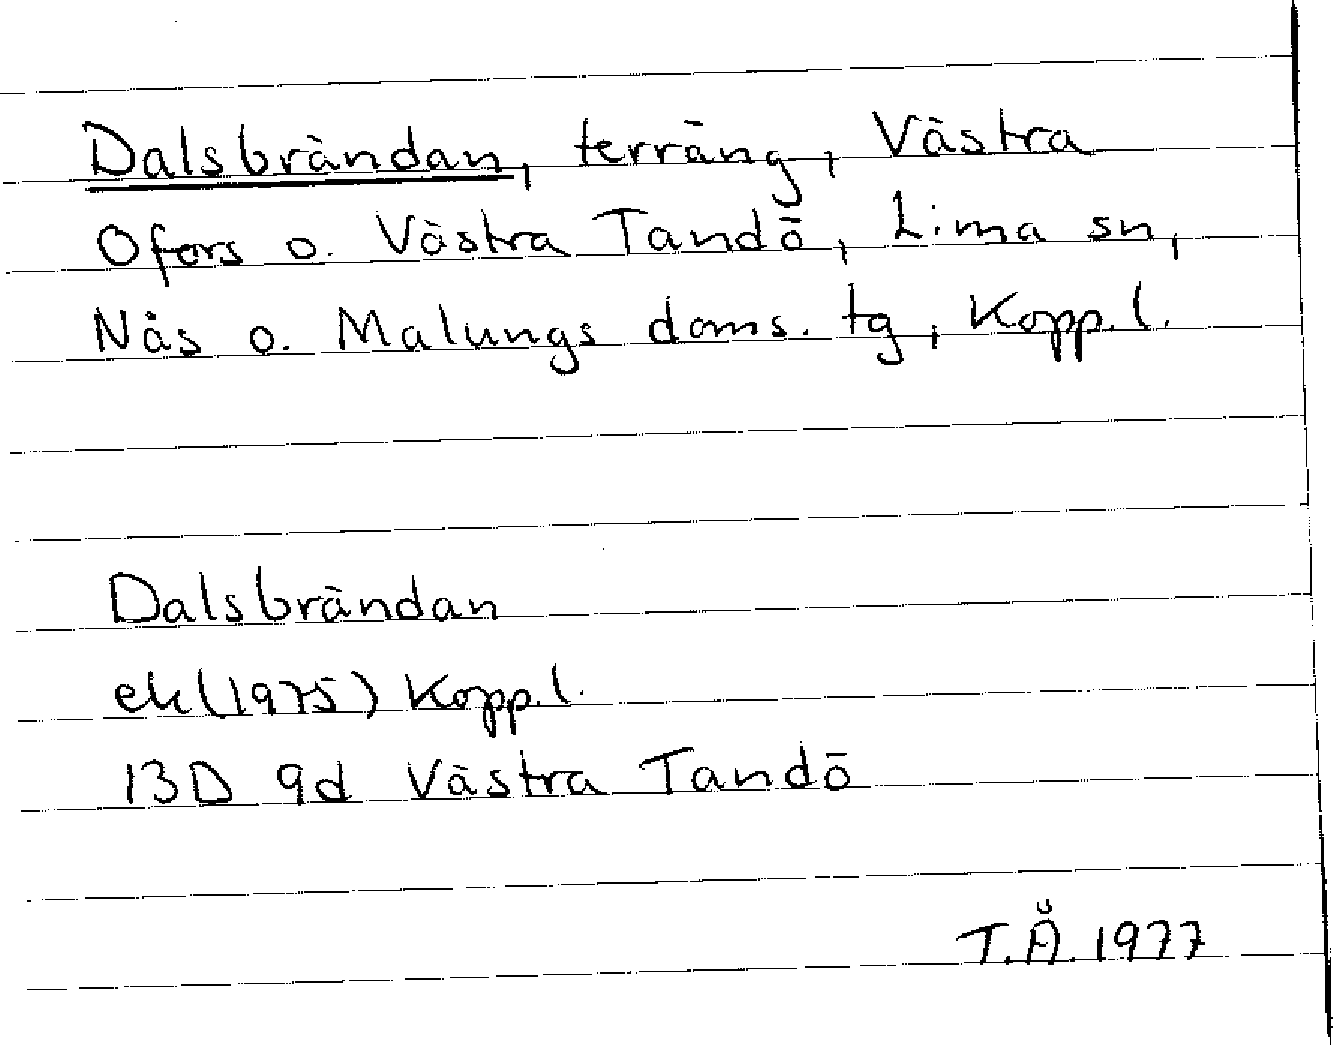 Dalsbrändan, terräng, Västra
Ofors o. Västra Tandö, Lima sn,
Nås o. Malungs doms. tg, Kopp.l.
Dalsbrändan
ek(1975) Kopp.l.
13D 9d Västra Tandö
T.Å. 1977